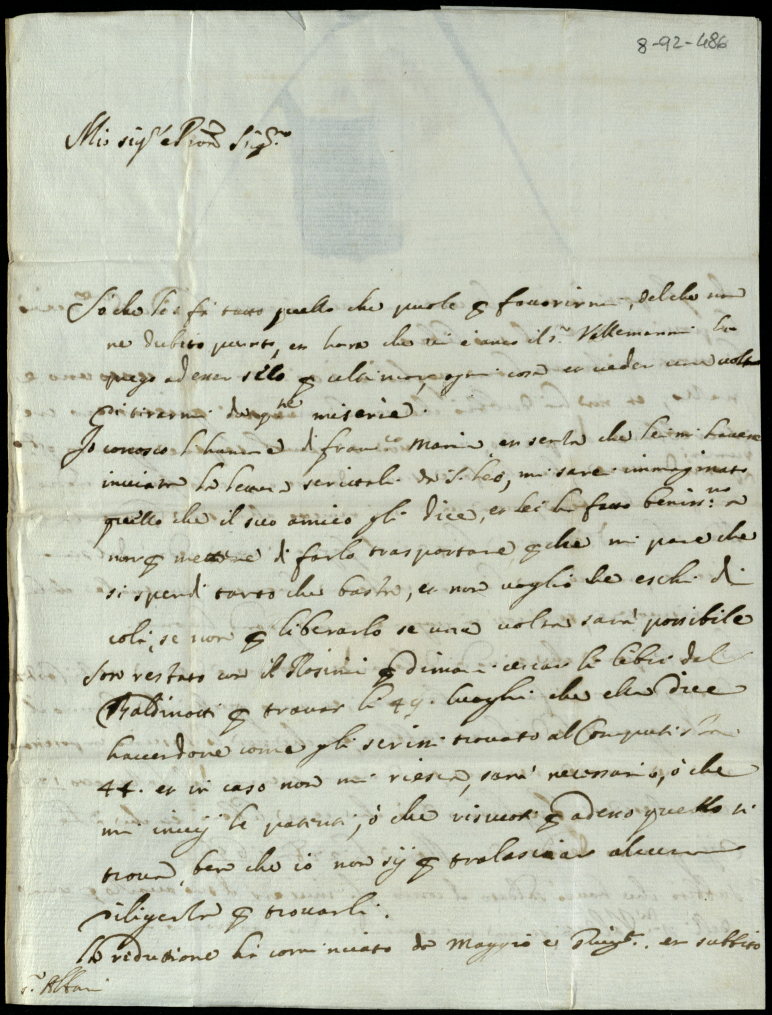 8-92-486
Mio sig.r e Pron Sig.re
So che lei fà tutto quello che puole p favorirmi, del che non
ne dubito punto, et hora che vi è anco il s.r Vallemanni la
prego ad esser seco p ultimare ogni cosa et veder una volta
di tirarmi da q.te miserie.
Io conosco l'humore di fran.co Maria et senza che lei mi havesse
inviata la lettera scrittali da S. Leo, mi sarei immaginato
quello che il suo amico gli dice, et lei hà fatto beniss.mo a
non p mettere di farlo trasportare p che mi pare che
si spendi tanto che basta, et non voglio che eschi di
colà, se non p liberarlo se una volta sarà possibile
Son restato con il Rosini p dimani cercar li libri del
Baldinotti p trovar li 49. luoghi che che dice
havendone come gli scrissi trovato al Computista
44. et in caso non mi riesca, sarà necessario, ò che
mi invij le patenti, ò che riscuoti p adesso quello si
trova, ben che io non sij p tralasciar alcuna
diligenza p trovarli.
La reduzione hà cominciato da Maggio e Giug.o et subbito
s.r Albani